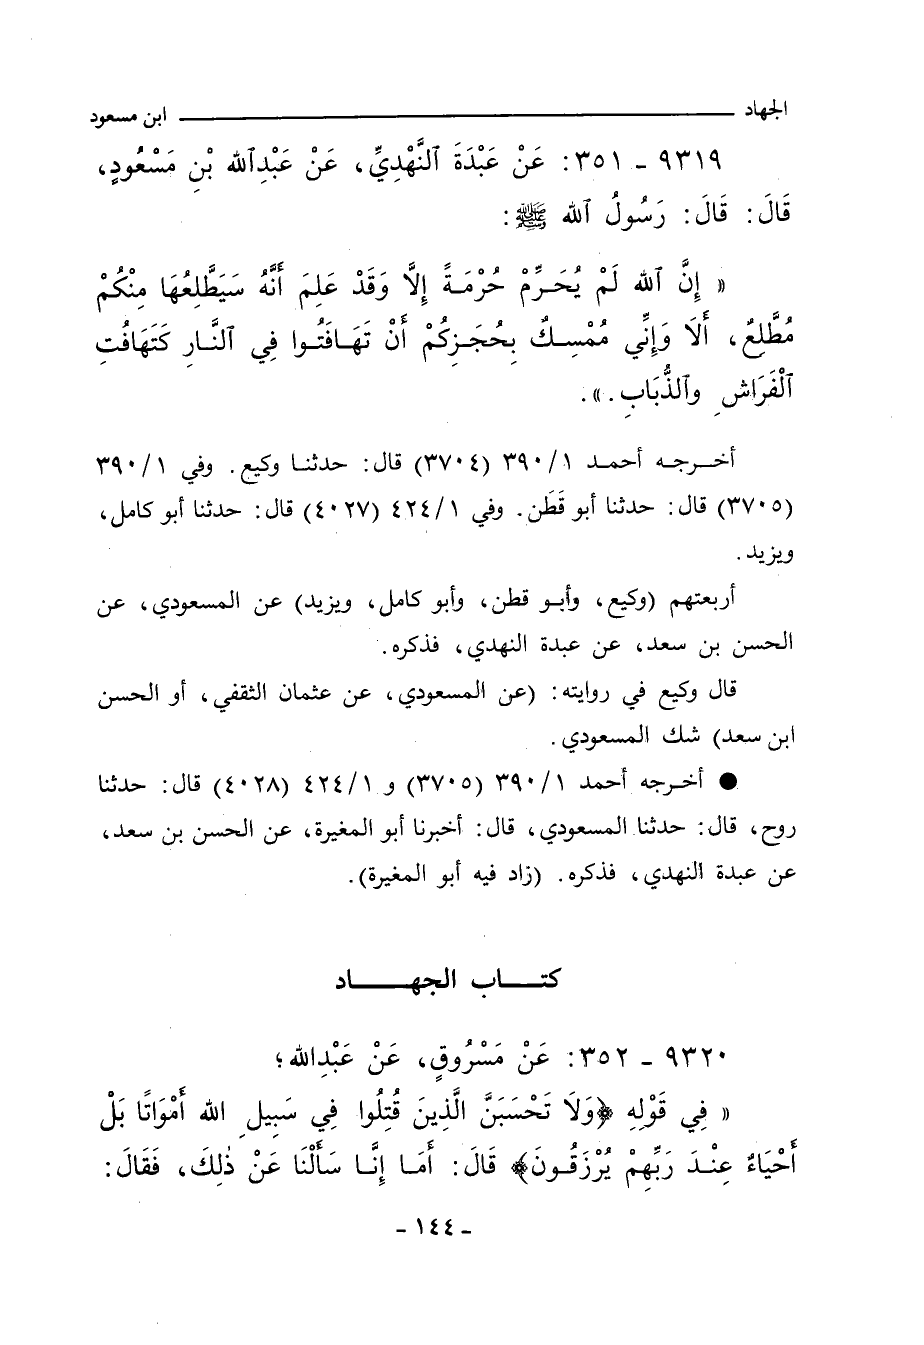 الجهاد ابن مسعود
٩٣١٩ - ٣٥١: عَنْ عَبْدَةَ ٱلنَّهْدِيِّ، عَنْ عَبْدِٱلله بْنِ مَسْعُودٍ،
قَالَ: قَالَ: رَسُولُ ٱلله ﷺ:
« إِنَّ ٱللهَ لَمْ يُحَرِّمْ حُرْمَةً إِلَّا وَقَدْ عَلِمَ أَنَّهُ سَيَطَّلِعُهَا مِنْكُمْ
مُطَّلِعٌ، أَلَا وَإِنِّي مُمْسِكٌ بِحُجَزِكُمْ أَنْ تَهَافَتُوا فِي ٱلنَّارِ كَتَهَافُتِ
ٱلْفَرَاشِ وٱلذُّبَابِ.».
أخرجه أحمد ١/٣٩٠ (٣٧٠٤) قال: حدثنا وكيع. وفي ١/٣٩٠
(٣٧٠٥) قال: حدثنا أبو قَطَن. وفي ١/٤٢٤ (٤٠٢٧) قال: حدثنا أبو كامل،
ويزيد.
أربعتهم (وكيع، وأبو قطن، وأبو كامل، ويزيد) عن المسعودي، عن
الحسن بن سعد، عن عبدة النهدي، فذكره.
قال وكيع في روايته: (عن المسعودي، عن عثمان الثقفي، أو الحسن
ابن سعد) شك المسعودي.
● أخرجه أحمد ١/٣٩٠ (٣٧٠٥) و ١/٤٢٤ (٤٠٢٨) قال: حدثنا
روح، قال: حدثنا المسعودي، قال: أخبرنا أبو المغيرة، عن الحسن بن سعد،
عن عبدة النهدي، فذكره. (زاد فيه أبو المغيرة).
كتاب الجهاد
٩٣٢٠ - ٣٥٢: عَنْ مَسْرُوقٍ، عَنْ عَبْدِالله؛
« فِي قَوْلِهِ ﴿وَلَا تَحْسَبَنَّ الَّذِينَ قُتِلُوا فِي سَبِيلِ الله أَمْوَاتًا بَلْ
أَحْيَاءٌ عِنْدَ رَبِّهِمْ يُرْزَقُونَ﴾ قَالَ: أَمَا إِنَّا سَأَلْنَا عَنْ ذٰلِكَ، فَقَالَ:
- ١٤٤ -